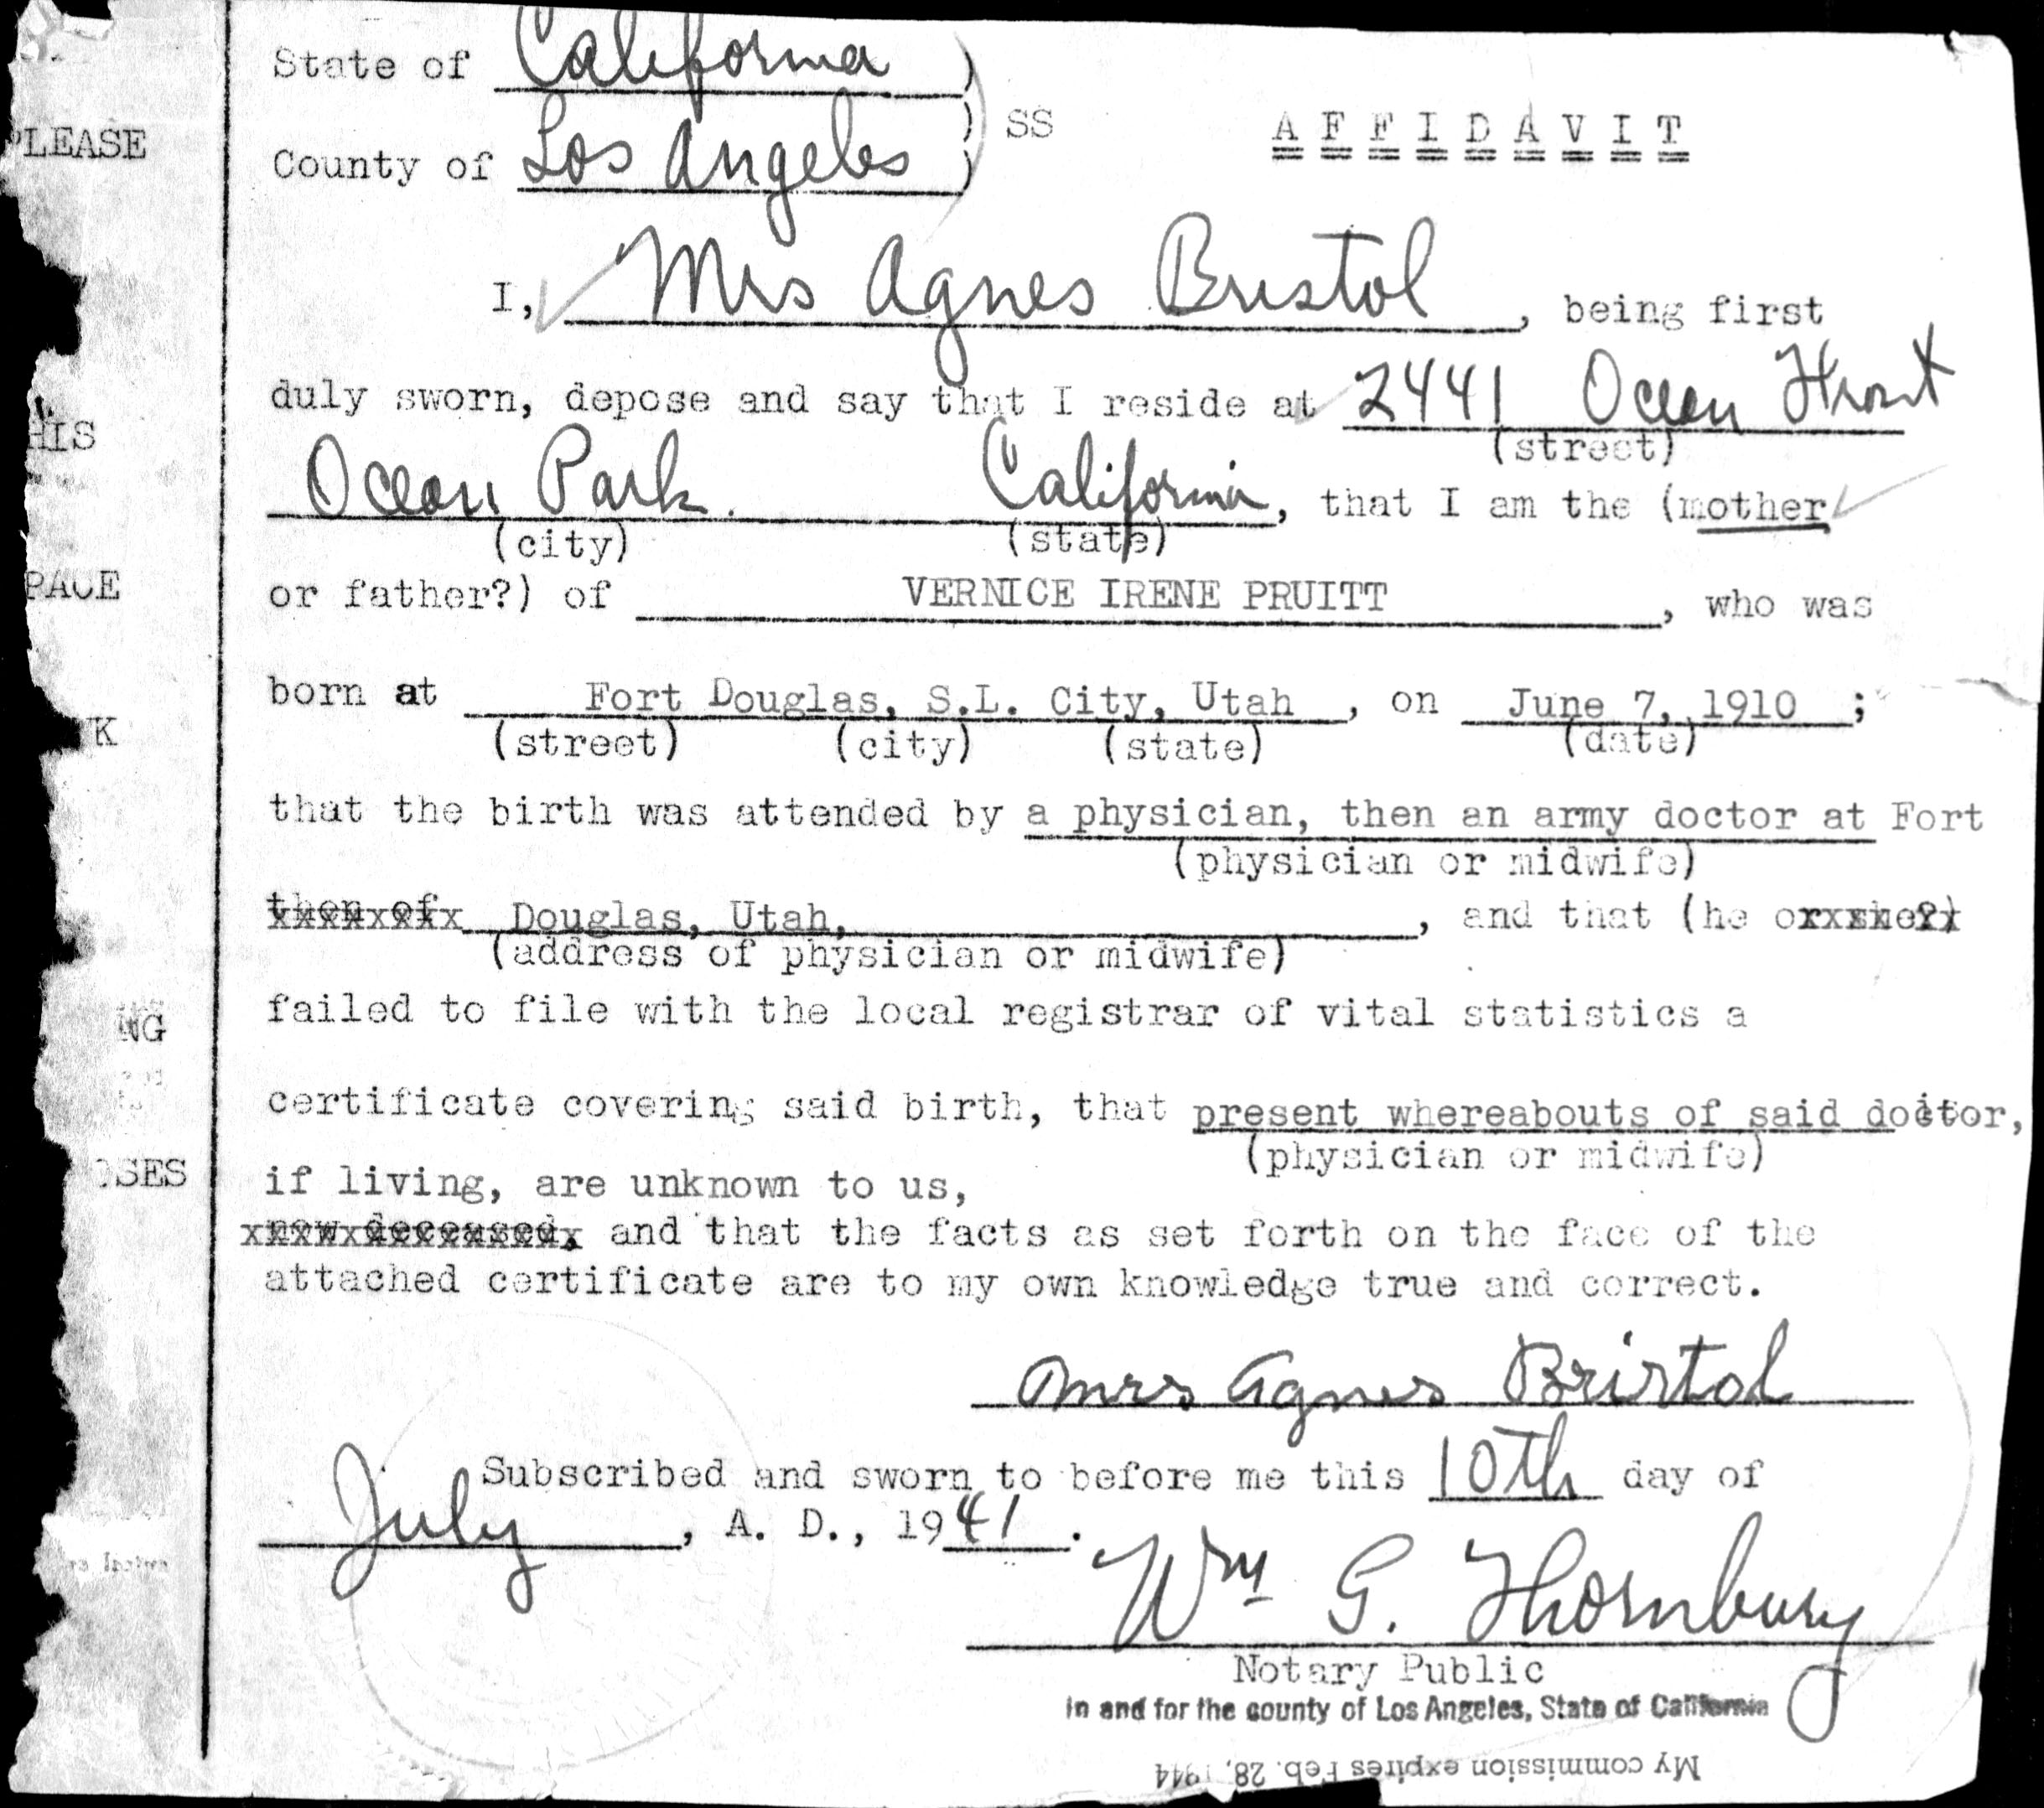 State of California )
) SS
A F F I D A V I T
County of Los Angeles )
I, Mrs Agnes Bristol , being first
duly sworn, depose and say that I reside at 2441 Ocean Front
(street)
Ocean Park. California, that I am the (mother
(city) (state)
or father?) of VERNICE IRENE PRUITT , who was
born at Fort Douglas, S.L. City, Utah , on June 7, 1910 ;
(street) (city) (state) (date)
that the birth was attended by a physician, then an army doctor at Fort
(physician or midwife)
then of Douglas, Utah, , and that (he or she?)
(address of physician or midwife)
failed to file with the local registrar of vital statistics a
certificate covering said birth, that present whereabouts of said doctor,
(physician or midwife)
if living, are unknown to us,
now deceased, and that the facts as set forth on the face of the
attached certificate are to my own knowledge true and correct.
Mrs Agnes Bristol
Subscribed and sworn to before me this 10th day of
July , A. D., 1941 .
Wm G. Thornbury
Notary Public
In and for the county of Los Angeles, State of California
My commission expires Feb. 28, 1944
PLEASE
HIS
PACE
K
NG
OSES